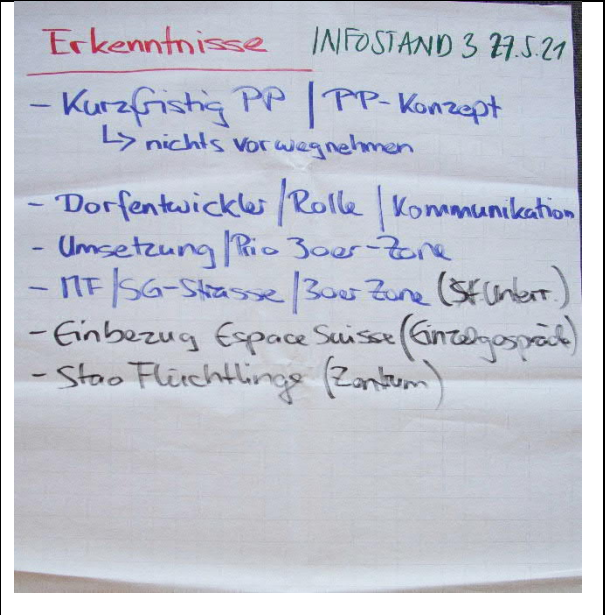 Erkenntnisse INFOSTAND 3 27.5.21
- Kurzfristig PP | PP-Konzept
↳ nichts vorwegnehmen
- Dorfentwickler | Rolle | Kommunikation
- Umsetzung | Prio 30er-Zone
- MF | SG-Strasse | 30er Zone (St. Unterr.)
- Einbezug Espace Suisse (Einzelgespräch)
- Stao Flüchtlinge (Zentrum)